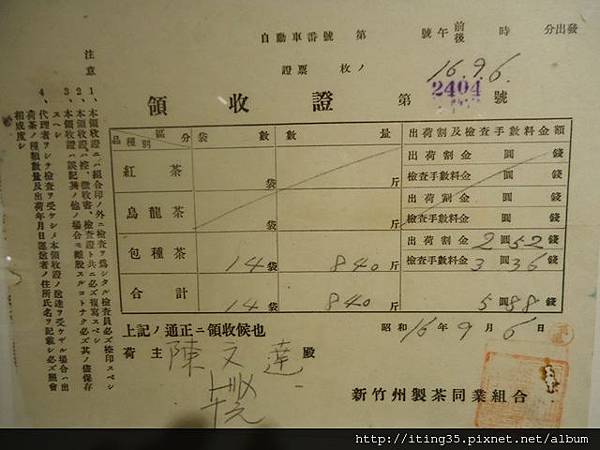 自動車番號 第 號午前後 時 分出發
證票 枚ノ 16.9.6.
領收證 第 2404 號
品種別 區分 袋數 數量 出荷割及檢查手數料金額
紅茶 袋 斤 出荷割金 圓 錢
檢查手數料金 圓 錢
烏龍茶 袋 斤 出荷割金 圓 錢
檢查手數料金 圓 錢
包種茶 14袋 840斤 出荷割金 2圓52錢
檢查手數料金 3圓36錢
合計 14袋 840斤 5圓88錢
上記ノ通正ニ領收候也
昭和16年9月6日
荷主 陳文達 殿
新竹州製茶同業組合
注意
1、本領收證ニハ組合印ノ外ニ檢查ヲ爲シタル檢查員必ズ捺印スベシ
2、本領收證ハ控、徵收書、檢查證ト共ニ必ズ複寫スベシ
3、本領收證ハ誤記其ノ他ノ場合モ離脫スルコトナク必ズ其ノ儘保存
スベシ
4、代理者ヲシテ檢查ヲ受ケシメ本領收證ノ送達ヲ受ケザル場合ハ出
荷茶ノ種類數量及出荷年月日運送者ノ住所氏名ヲ記載シ必ズ照會
相成度シ
http://iting35.pixnet.net/album